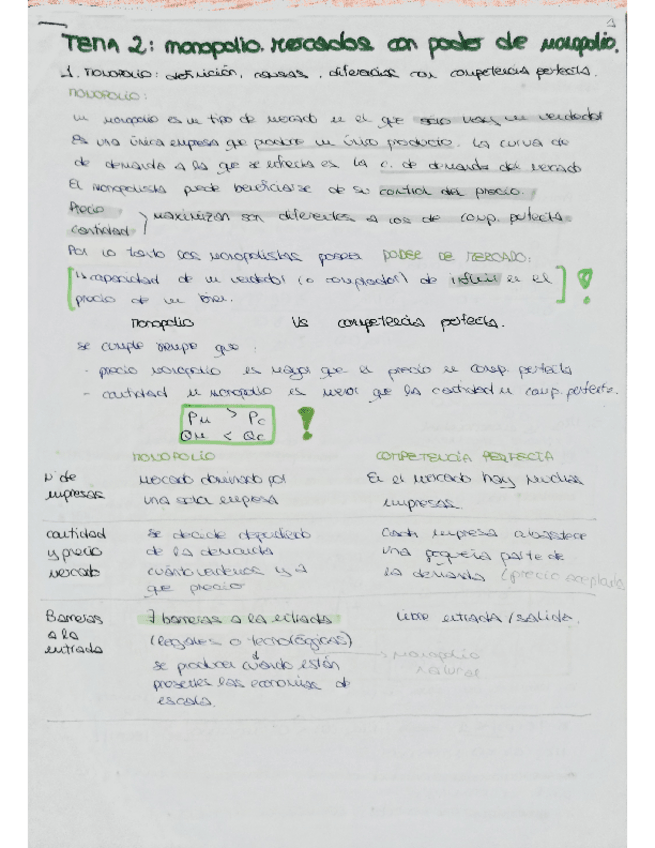 1
TEMA 2: monopolio. mercados con poder de monopolio.
1. MONOPOLIO: definición, causas, diferencias con competencia perfecta.
MONOPOLIO:
un monopolio es un tipo de mercado en el que solo hay un vendedor
Es una única empresa que produce un único producto. La curva de
de demanda a la que se enfrenta es la c. de demanda del mercado
El monopolista puede beneficiarse de su control del precio.
Precio
cantidad } maximizan son diferentes a los de comp. perfecta
Por lo tanto los monopolistas poseen PODER DE MERCADO:
"capacidad de un vendedor (o comprador) de influir en el
precio de un bien. !
Monopolio Vs competencia perfecta.
se cumple siempre que:
- precio monopolio es mayor que el precio en comp. perfecta
- cantidad en monopolio es menor que la cantidad en comp. perfecta.
PM > PC
QM < QC !
MONOPOLIO COMPETENCIA PERFECTA
Nº de mercado dominado por En el mercado hay muchas
empresas una sola empresa empresas.
cantidad se decide dependiendo Cada empresa abastece
y precio de la demanda una pequeña parte de
mercado cuánto vender y a la demanda (precio aceptante
que precio
Barreras ∃ barreras a la entrada Libre entrada / salida.
a la (legales o tecnológicas)
entrada se producen cuando están → Monopolio
presentes las economías de natural
escala.